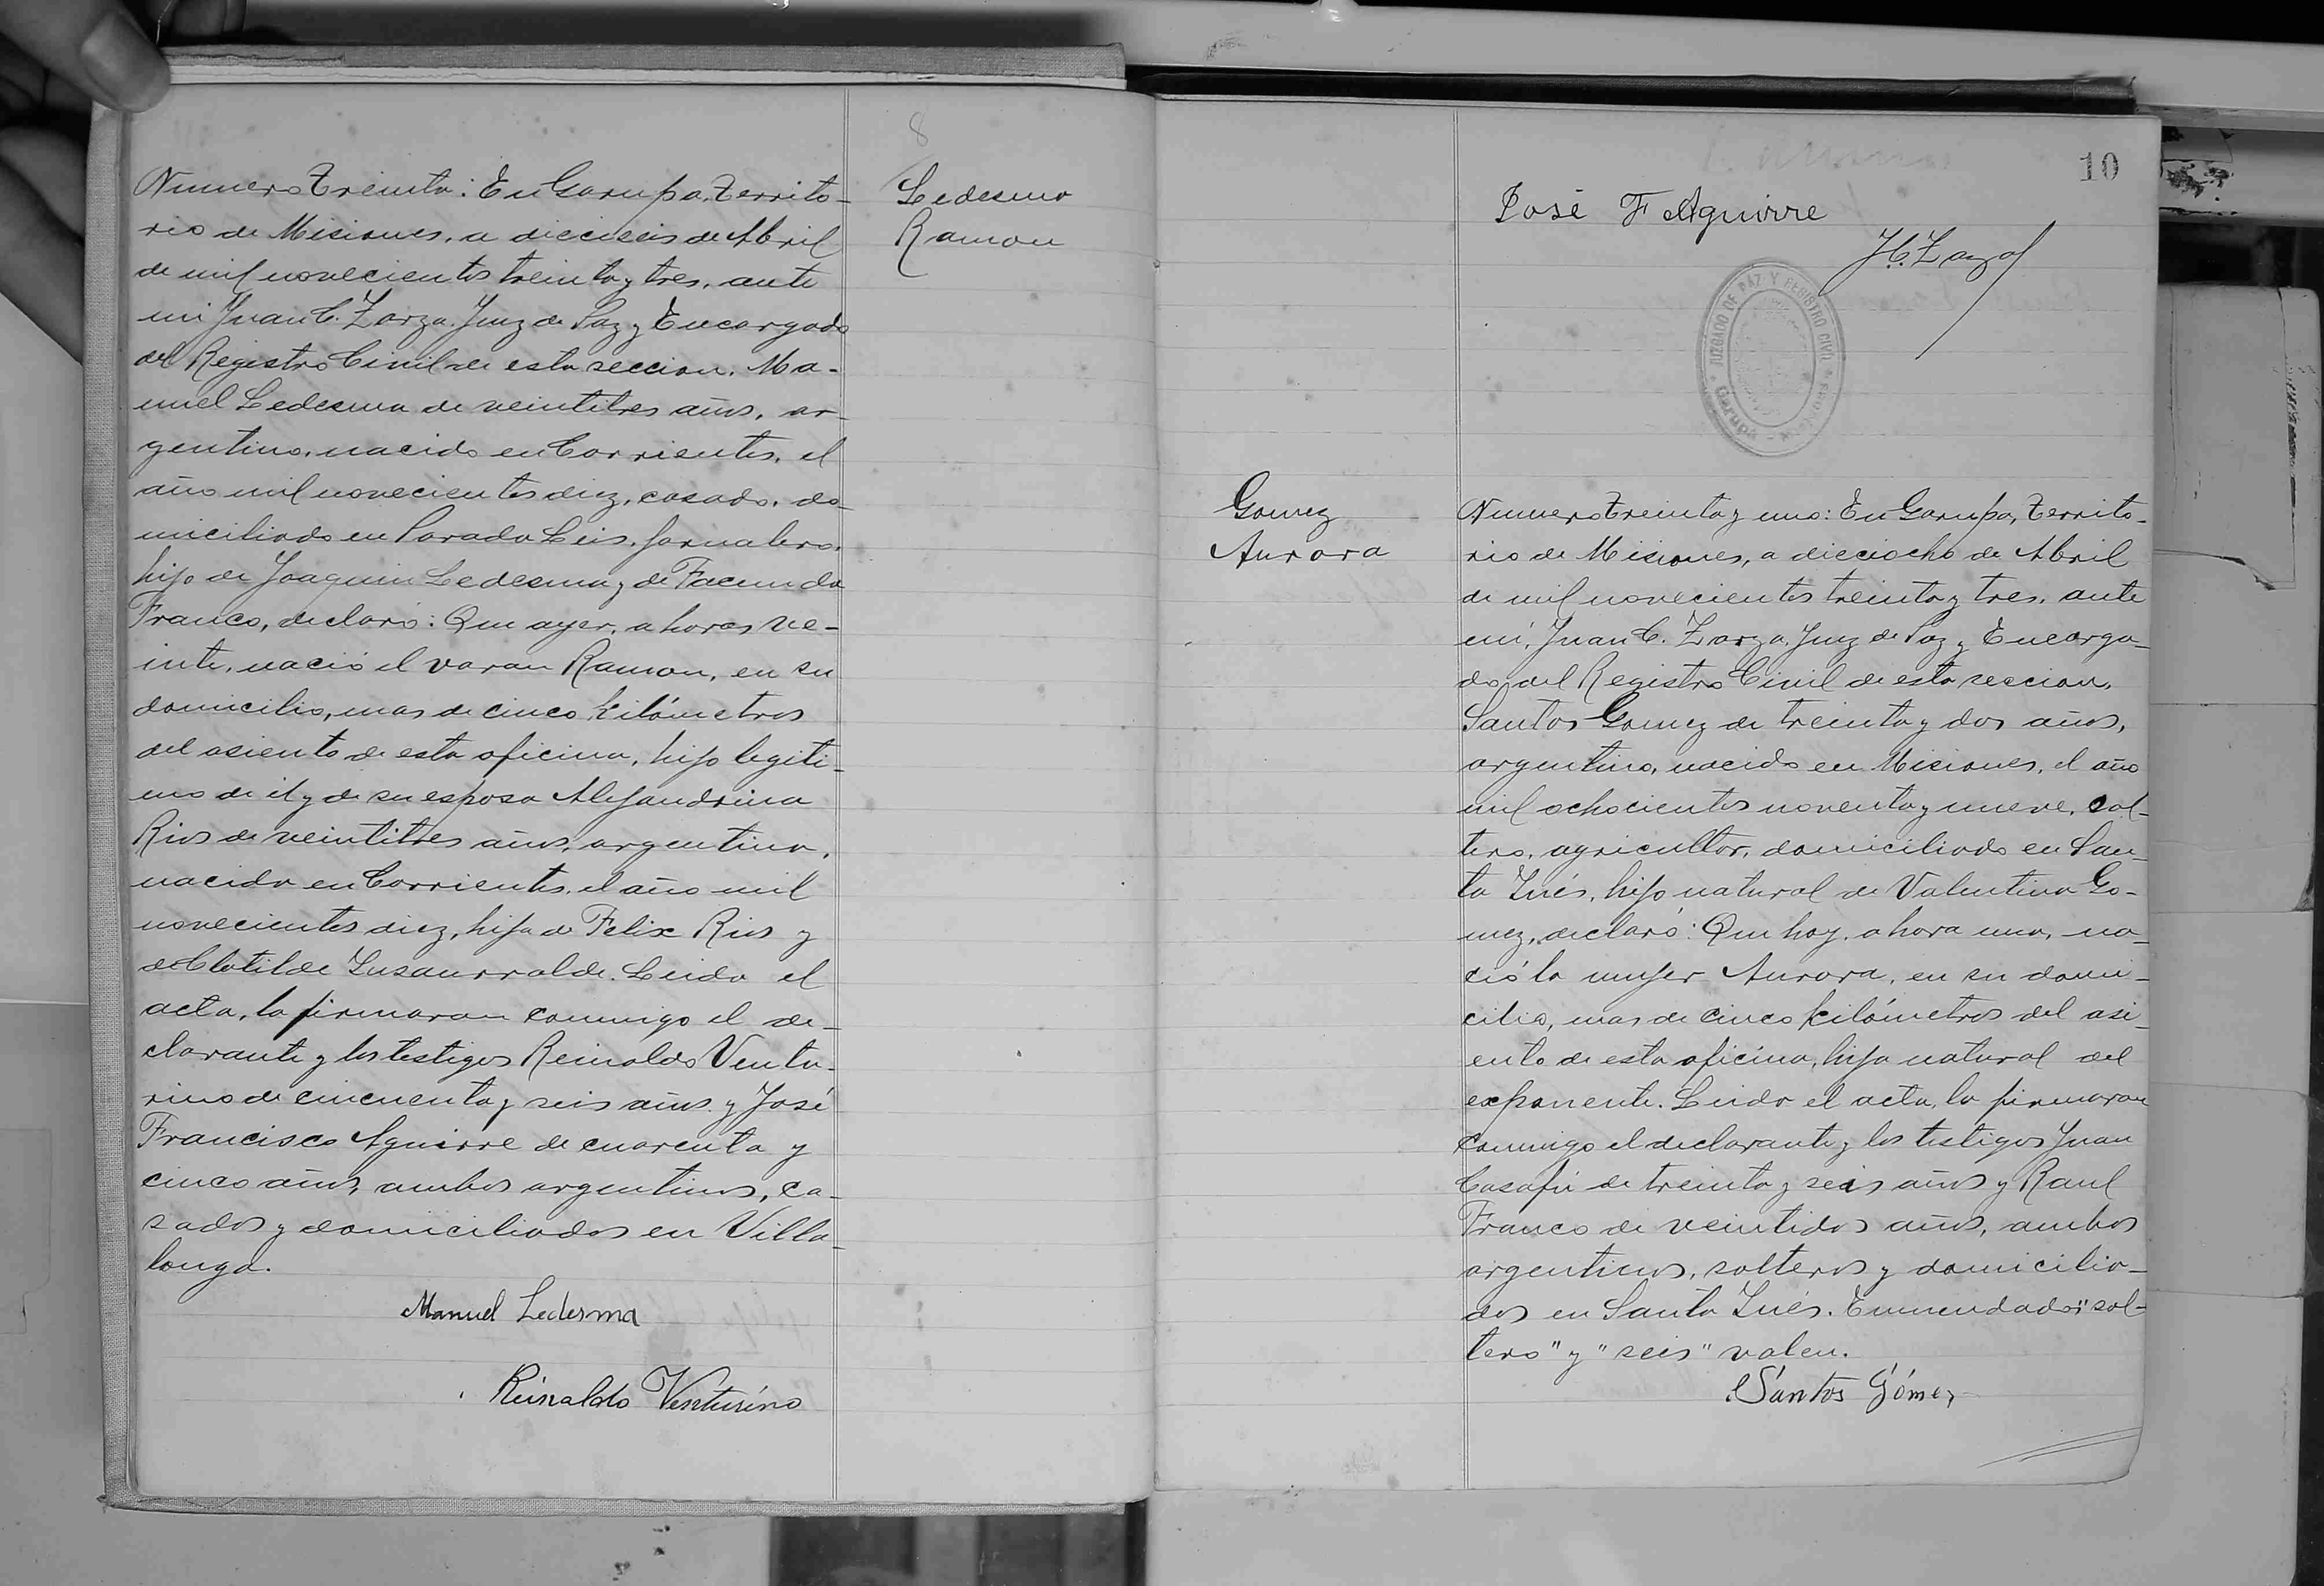 8
Numero treinta: En Garupa, Territo-
rio de Misiones, a dieciseis de Abril
de mil novecientos treinta y tres, ante
mi Juan C. Zarza, Juez de Paz y Encargado
del Registro Civil de esta seccion, Ma-
nuel Ledesma de veintitres años, ar-
gentino, nacido en Corrientes, el
año mil novecientos diez, casado, do-
miciliado en Parada Leis, jornalero,
hijo de Joaquin Ledesma y de Facunda
Franco, declaró: Que ayer, a horas ve-
inte, nació el varon Ramon, en su
domicilio, mas de cinco kilómetros
del asiento de esta oficina, hijo legiti-
mo de él y de su esposa Alejandrina
Rios de veintitres años, argentina,
nacida en Corrientes, el año mil
novecientos diez, hija de Felix Rios y
de Clotilde Insaurralde. Leida el
acta, la firmaron conmigo el de-
clarante y los testigos Reinaldo Ventu-
rino de cincuenta y seis años y José
Francisco Aguirre de cuarenta y
cinco años, ambos argentinos, ca-
sados y domiciliados en Villa-
longa.
Manuel Ledesma
Reinaldo Venturino
Ledesma
Ramon
10
José F Aguirre
J.C. Zarza
JUZGADO DE PAZ Y REGISTRO CIVIL
Garupá
Gomez
Aurora
Numero treinta y uno: En Garupa, Territo-
rio de Misiones, a dieciocho de Abril
de mil novecientos treinta y tres, ante
mí, Juan C. Zarza, Juez de Paz y Encarga-
do del Registro Civil de esta seccion,
Santos Gomez de treinta y dos años,
argentino, nacido en Misiones, el año
mil ochocientos noventa y nueve, sol-
tero, agricultor, domiciliado en San-
ta Inés, hijo natural de Valentina Go-
mez, declaró: Que hoy, a hora una, na-
ció la mujer Aurora, en su domi-
cilio, mas de cinco kilómetros del asi-
ento de esta oficina, hija natural del
exponente. Leida el acta, la firmaron
conmigo el declarante y los testigos Juan
Casafú de treinta y seis años y Raul
Franco de veintidos años, ambos
argentinos, solteros y domicilia-
dos en Santa Inés. Enmendado: "sol-
tero" y "seis" valen.
Santos Gómez